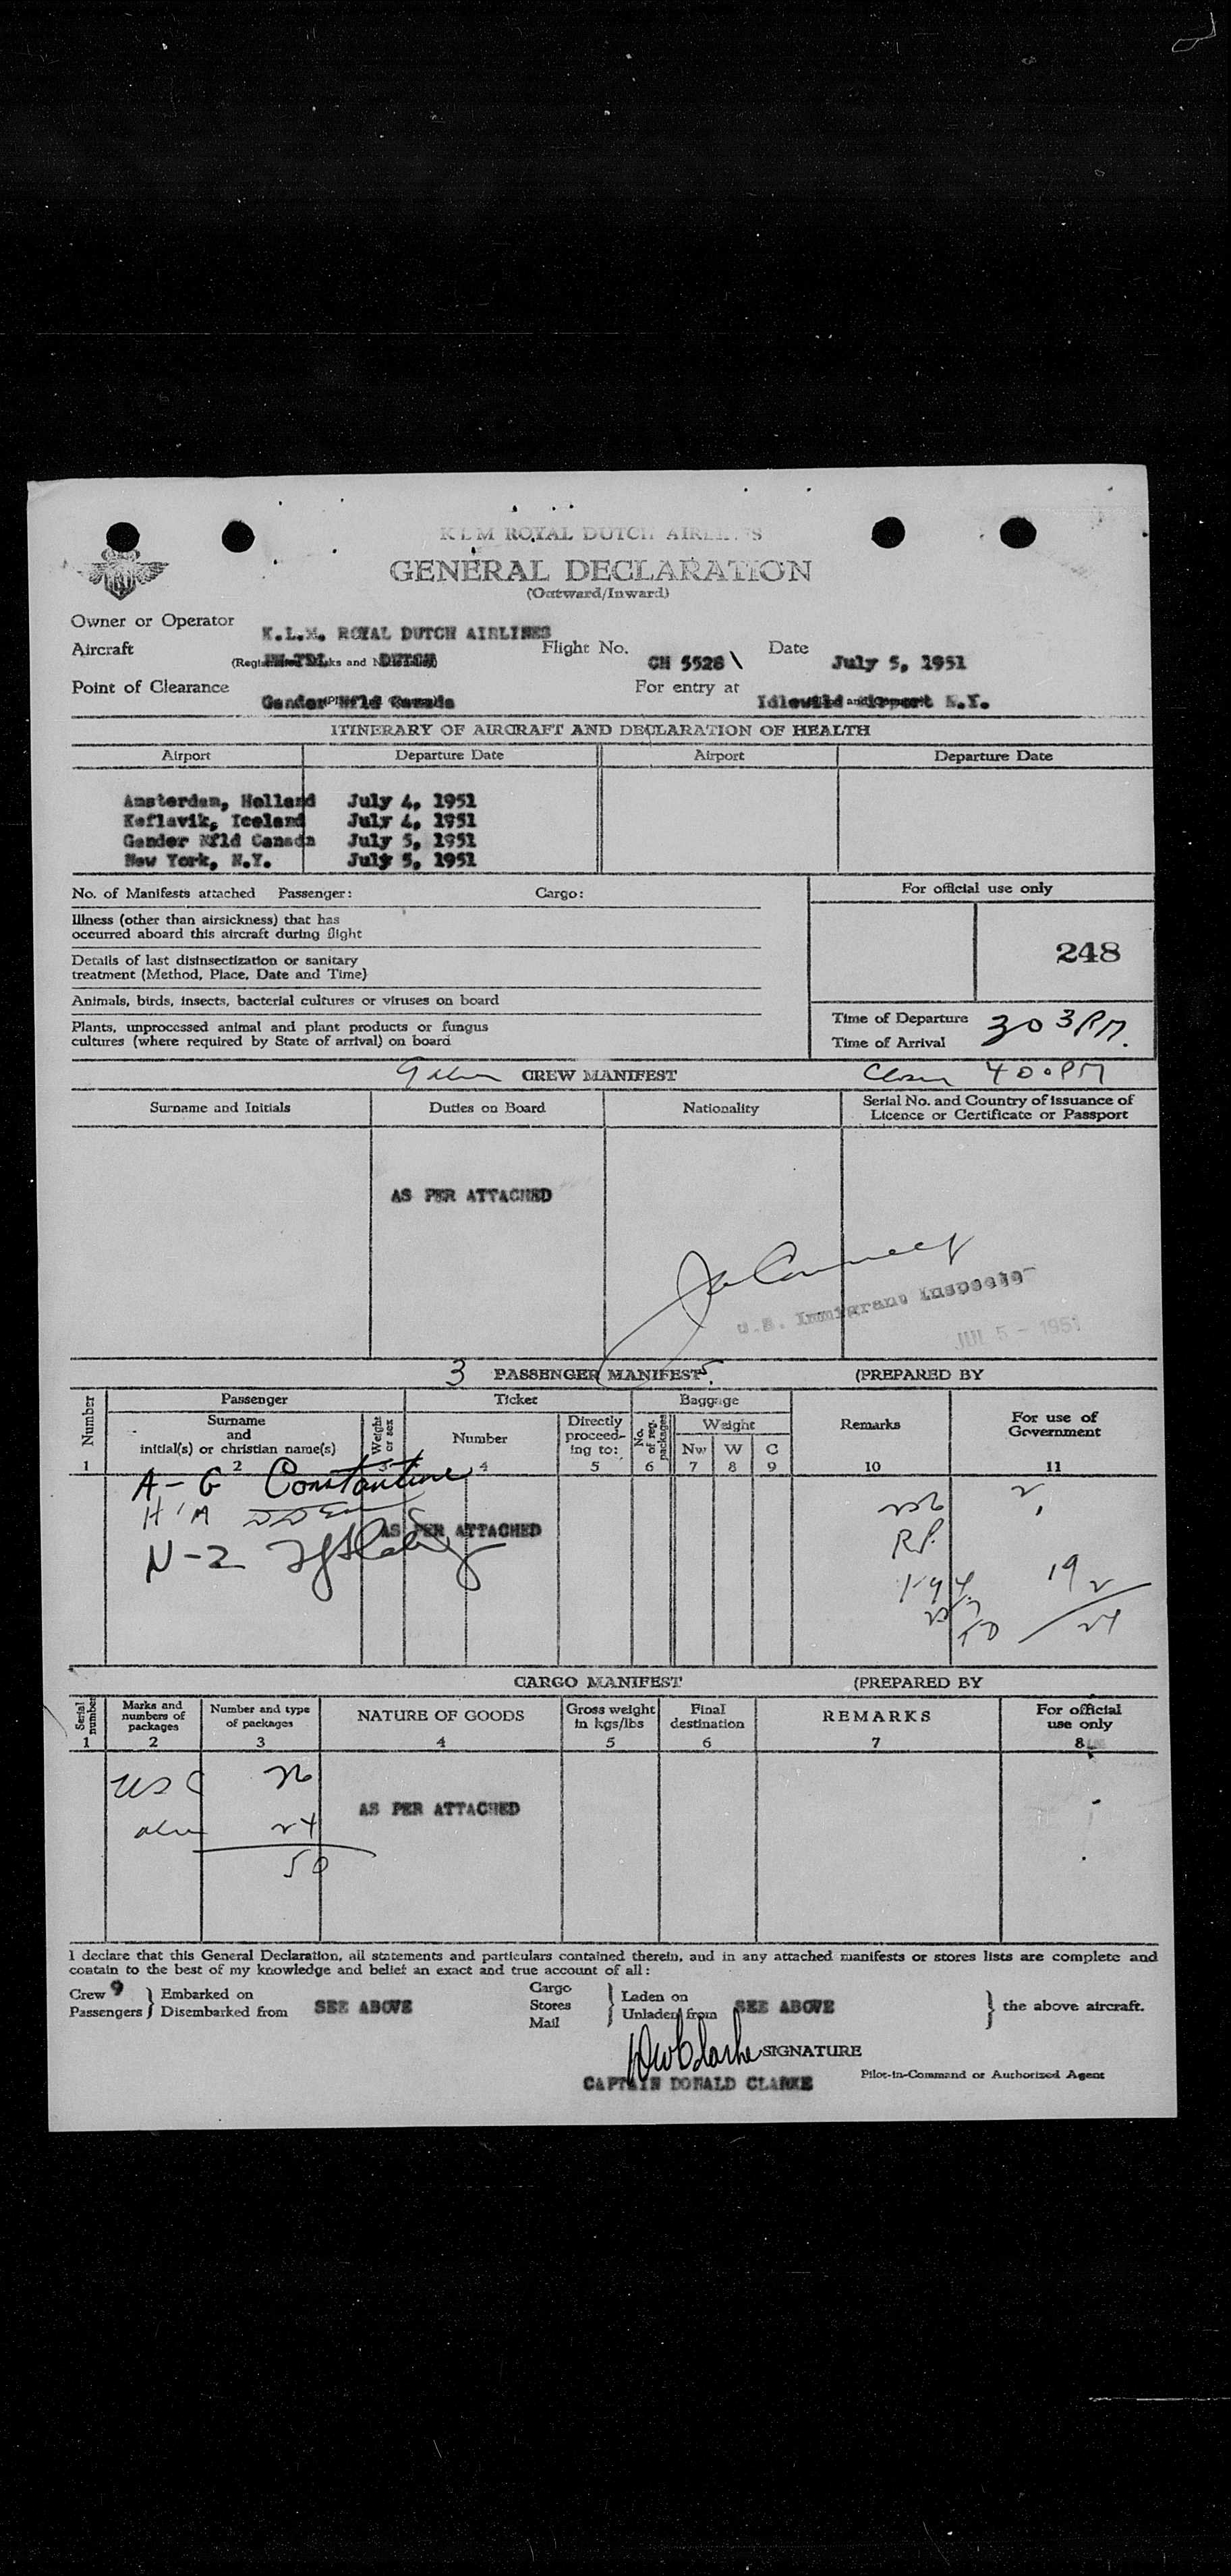 K L M ROYAL DUTCH AIRLINES
GENERAL DECLARATION
(Outward/Inward)
Owner or Operator K.L.M. ROYAL DUTCH AIRLINES
Aircraft DUTCH Flight No. CH 5528 Date July 5, 1951
(Registration Marks and Nationality)
Point of Clearance Gander Nfld Canada For entry at Idlewild Airport N.Y.
ITINERARY OF AIRCRAFT AND DECLARATION OF HEALTH
Airport Departure Date Airport Departure Date
Amsterdam, Holland July 4, 1951
Keflavik, Iceland July 4, 1951
Gander Nfld Canada July 5, 1951
New York, N.Y. July 5, 1951
No. of Manifests attached Passenger: Cargo: For official use only
Illness (other than airsickness) that has
occurred aboard this aircraft during flight
248
Details of last disinsectization or sanitary
treatment (Method, Place, Date and Time)
Animals, birds, insects, bacterial cultures or viruses on board
Plants, unprocessed animal and plant products or fungus
cultures (where required by State of arrival) on board
Time of Departure
Time of Arrival 303 PM.
CREW MANIFEST 400 PM
Surname and Initials Duties on Board Nationality Serial No. and Country of Issuance of
Licence or Certificate or Passport
AS PER ATTACHED
U.S. Immigrant Inspector
JUL 5 - 1951
3 PASSENGER MANIFEST (PREPARED BY
Number Passenger Ticket Baggage Remarks For use of
Government
Surname
and
initial(s) or christian name(s) Weight or sex Number Directly
proceed-
ing to: No. of reg. packages Weight
Nw W C
1 2 3 4 5 6 7 8 9 10 11
A-G Constantine
H'M
AS PER ATTACHED
N-2
RP.
I-94 19
24
CARGO MANIFEST (PREPARED BY
Serial number Marks and
numbers of
packages Number and type
of packages NATURE OF GOODS Gross weight
in kgs/lbs Final
destination REMARKS For official
use only
1 2 3 4 5 6 7 8
USC 26
AS PER ATTACHED
24
50
I declare that this General Declaration, all statements and particulars contained therein, and in any attached manifests or stores lists are complete and
contain to the best of my knowledge and belief an exact and true account of all:
Crew 9 Embarked on Cargo Laden on
Passengers Disembarked from SEE ABOVE Stores Unladen from SEE ABOVE the above aircraft.
Mail
DW Clarke SIGNATURE
CAPTAIN DONALD CLARKE Pilot-in-Command or Authorized Agent